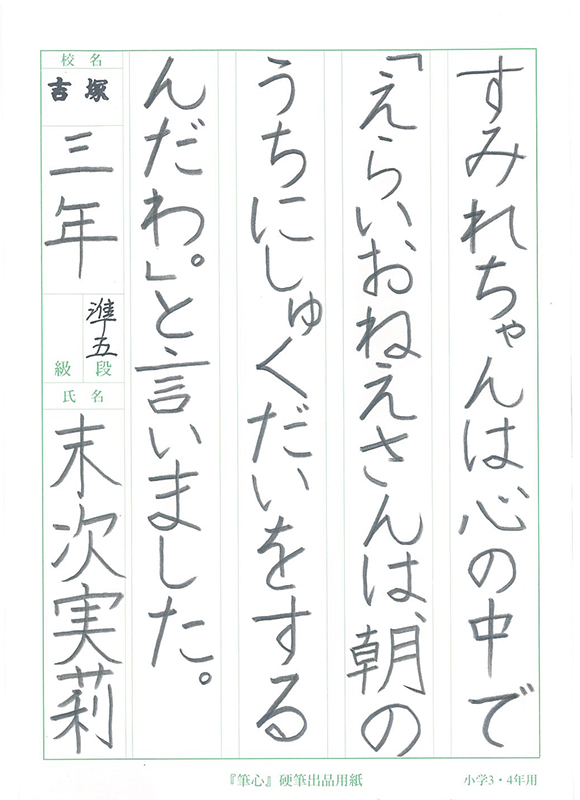 すみれちゃんは心の中で
「えらいおねえさんは、朝の
うちにしゅくだいをする
んだわ。」と言いました。
校名
吉塚
三年
準五
級段
氏名
末次実莉
『筆心』硬筆出品用紙
小学3・4年用